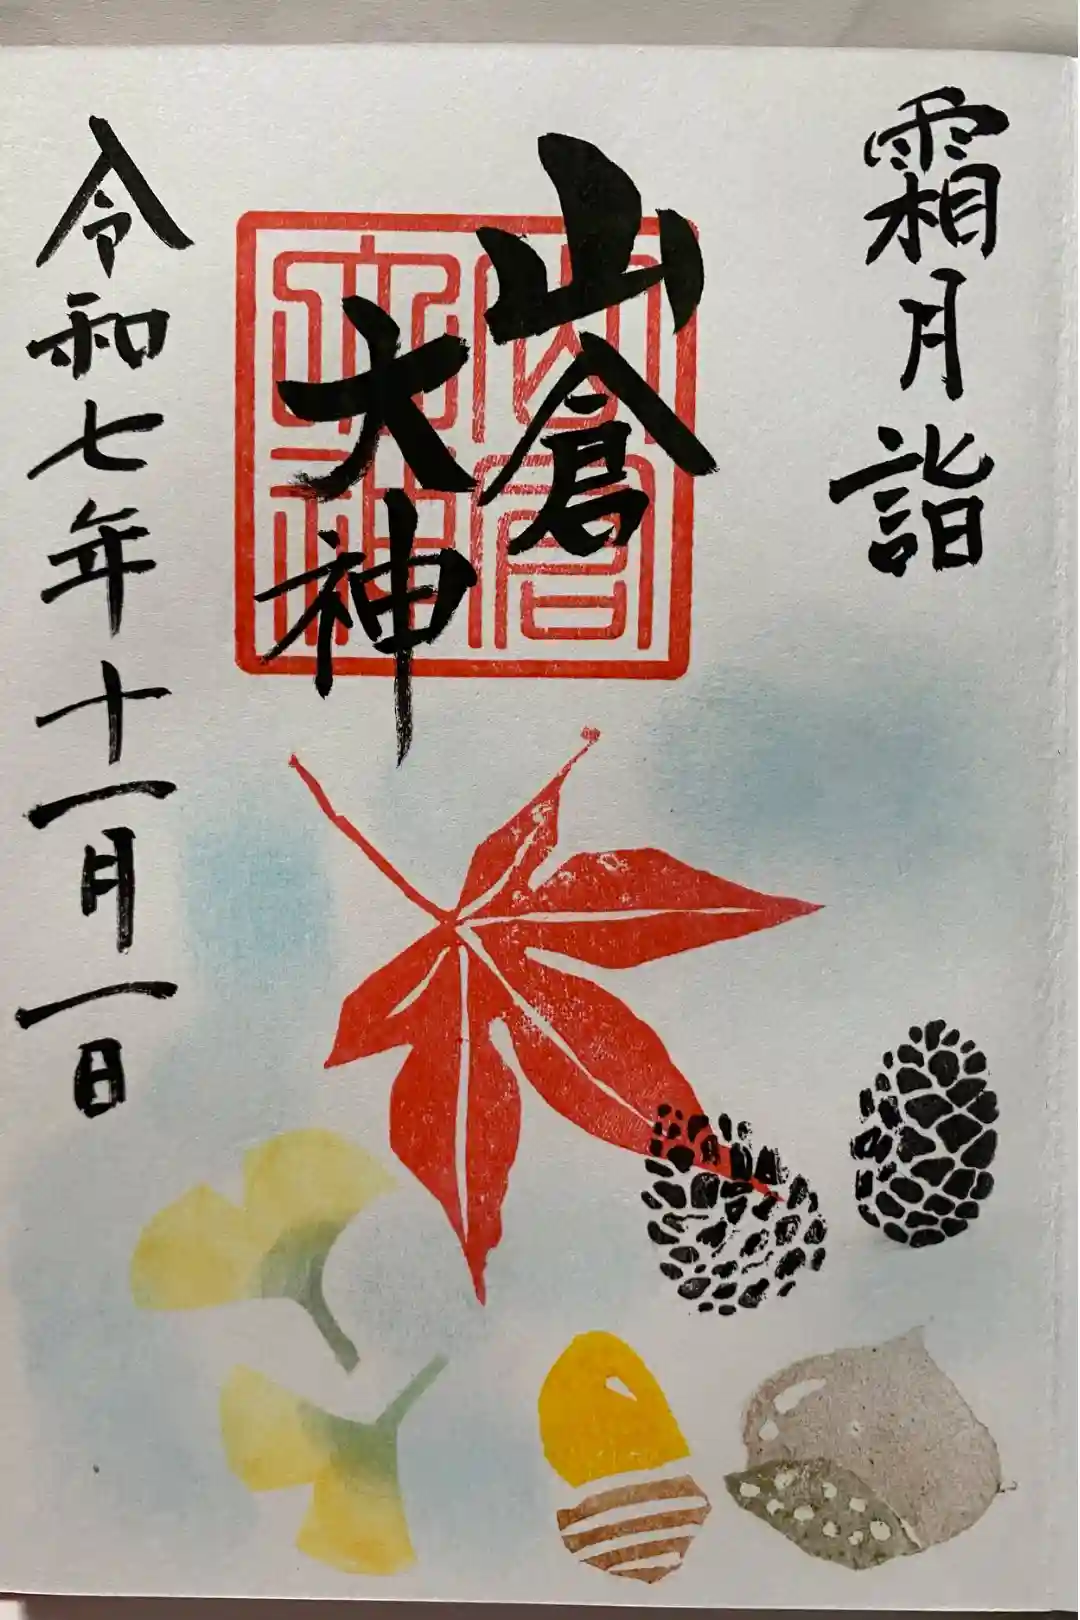 霜月詣
山倉
大神
山倉
大神
令和七年十一月一日